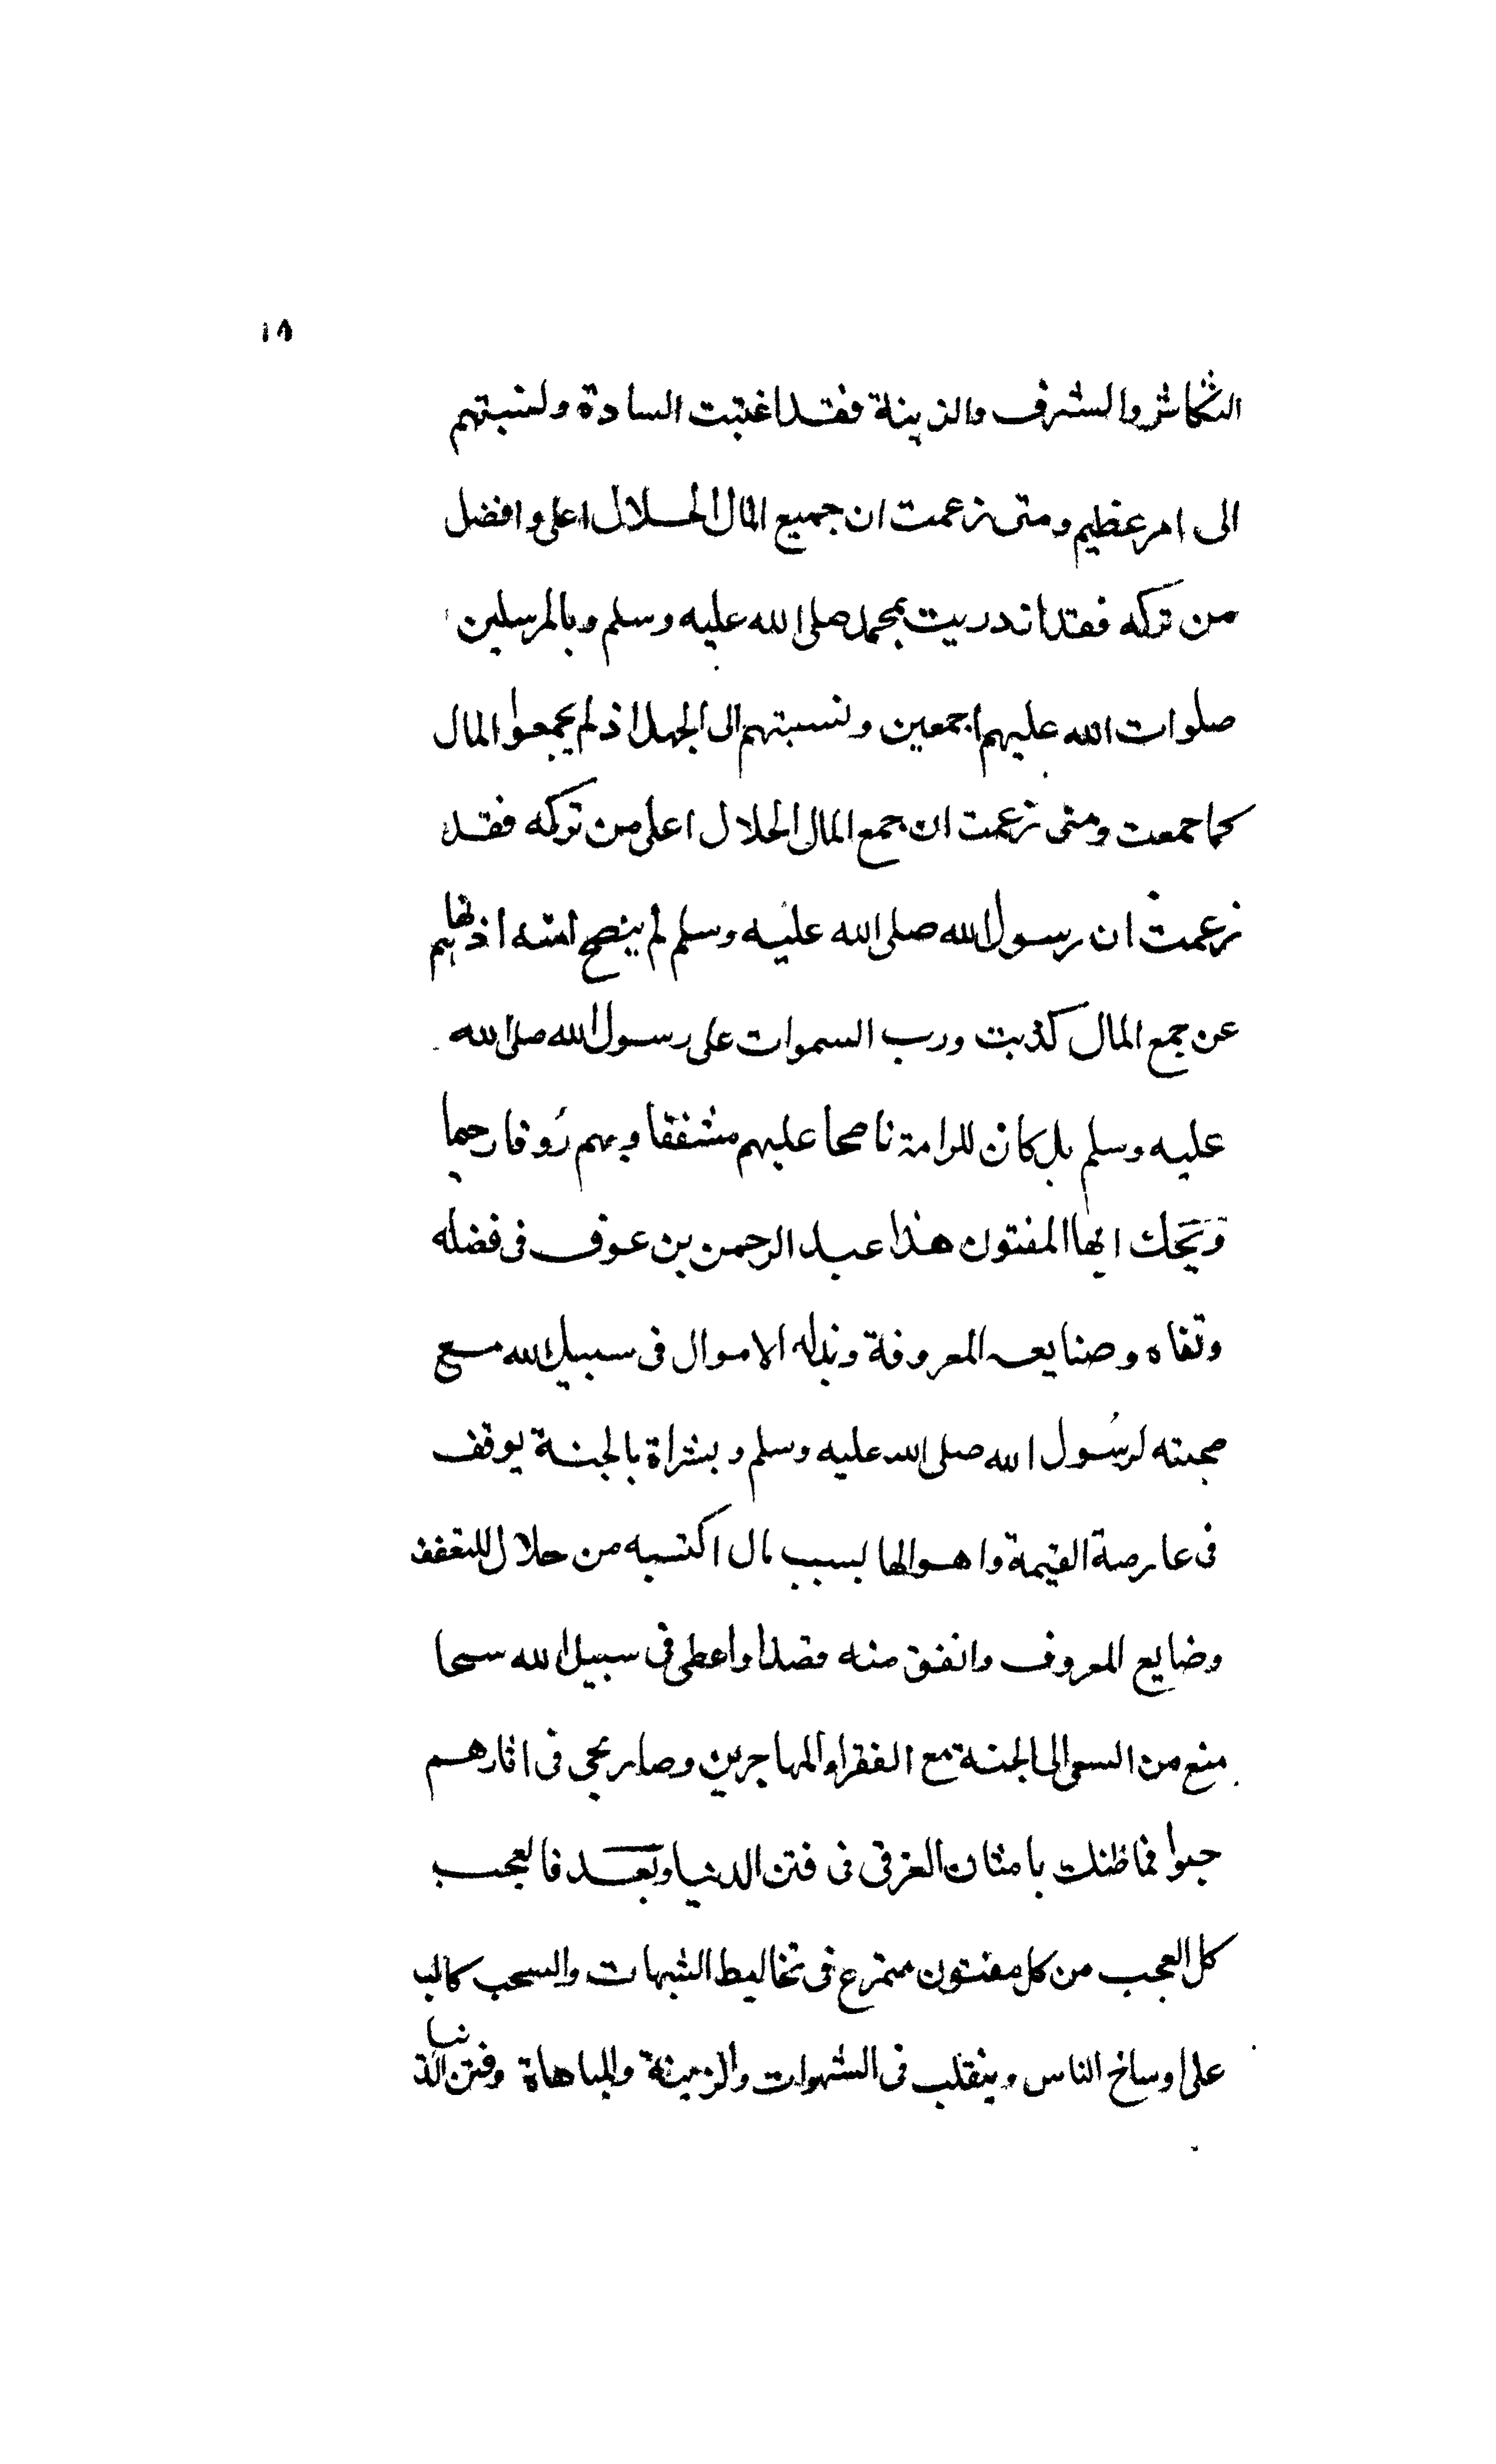 ١٨
التكاثر والشرف والزينة فقد اغتبت السادة ولنسبتهم
الى امر عظيم ومتى زعمت ان جميع المال الحلال اعلى وافضل
من تركه فقد ازدريت بمحمد صلى الله عليه وسلم وبالمرسلين
صلوات الله عليهم اجمعين ونسبتهم الى الجهل اذ لم يجمعوا المال
كما جمعت ومتى زعمت ان جمع المال الحلال اعلى من تركه فقد
زعمت ان رسول الله صلى الله عليه وسلم لم ينصح امته اذ نهاهم
عن جمع المال كذبت ورب السموات على رسول الله صلى الله
عليه وسلم بل كان للامة ناصحا عليهم مشفقا وبهم رُوفا رحيما
ويحك ايها المفتون هذا عبد الرحمن بن عوف فى فضله
وتقاه وصنايعه المعروفة وبذله الاموال فى سبيل الله مع
صحبته لرسُول الله صلى الله عليه وسلم وبشراة بالجنة يوقف
فى عارصة القيمة واهوالها بسبب مال اكتسبه من حلال للتعفف
وضايع المعروف وانفق منه قصدا واعطى فى سبيل الله سمحا
منع من السعى الى الجنة مع الفقراء المهاجرين وصار يحبى فى اثارهم
حبوا فما ظنك بامثان الغرقى فى فتن الدنيا وبعد فالعجب
كل العجب من كل مفتون متمرغ فى تخاليط الشبهات والسحب كالب
على اوساخ الناس وينقلب فى الشهوات والزينة والمباهاة وفتن الدنيا